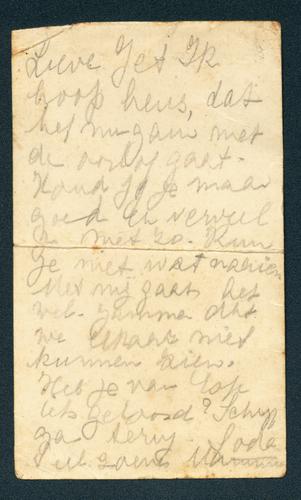 Lieve Jet Ik
hoop heus, dat
het nu gauw met
de oorlog gaat.
Houd jij je maar
goed en verveel
je niet zo. Kun
je niet wat naaien
Met mij gaat het
wel. Jammer dat
we elkaar niet
kunnen zien.
Heb je van
iets gehoord? Schrijf
ga terug.
zoen